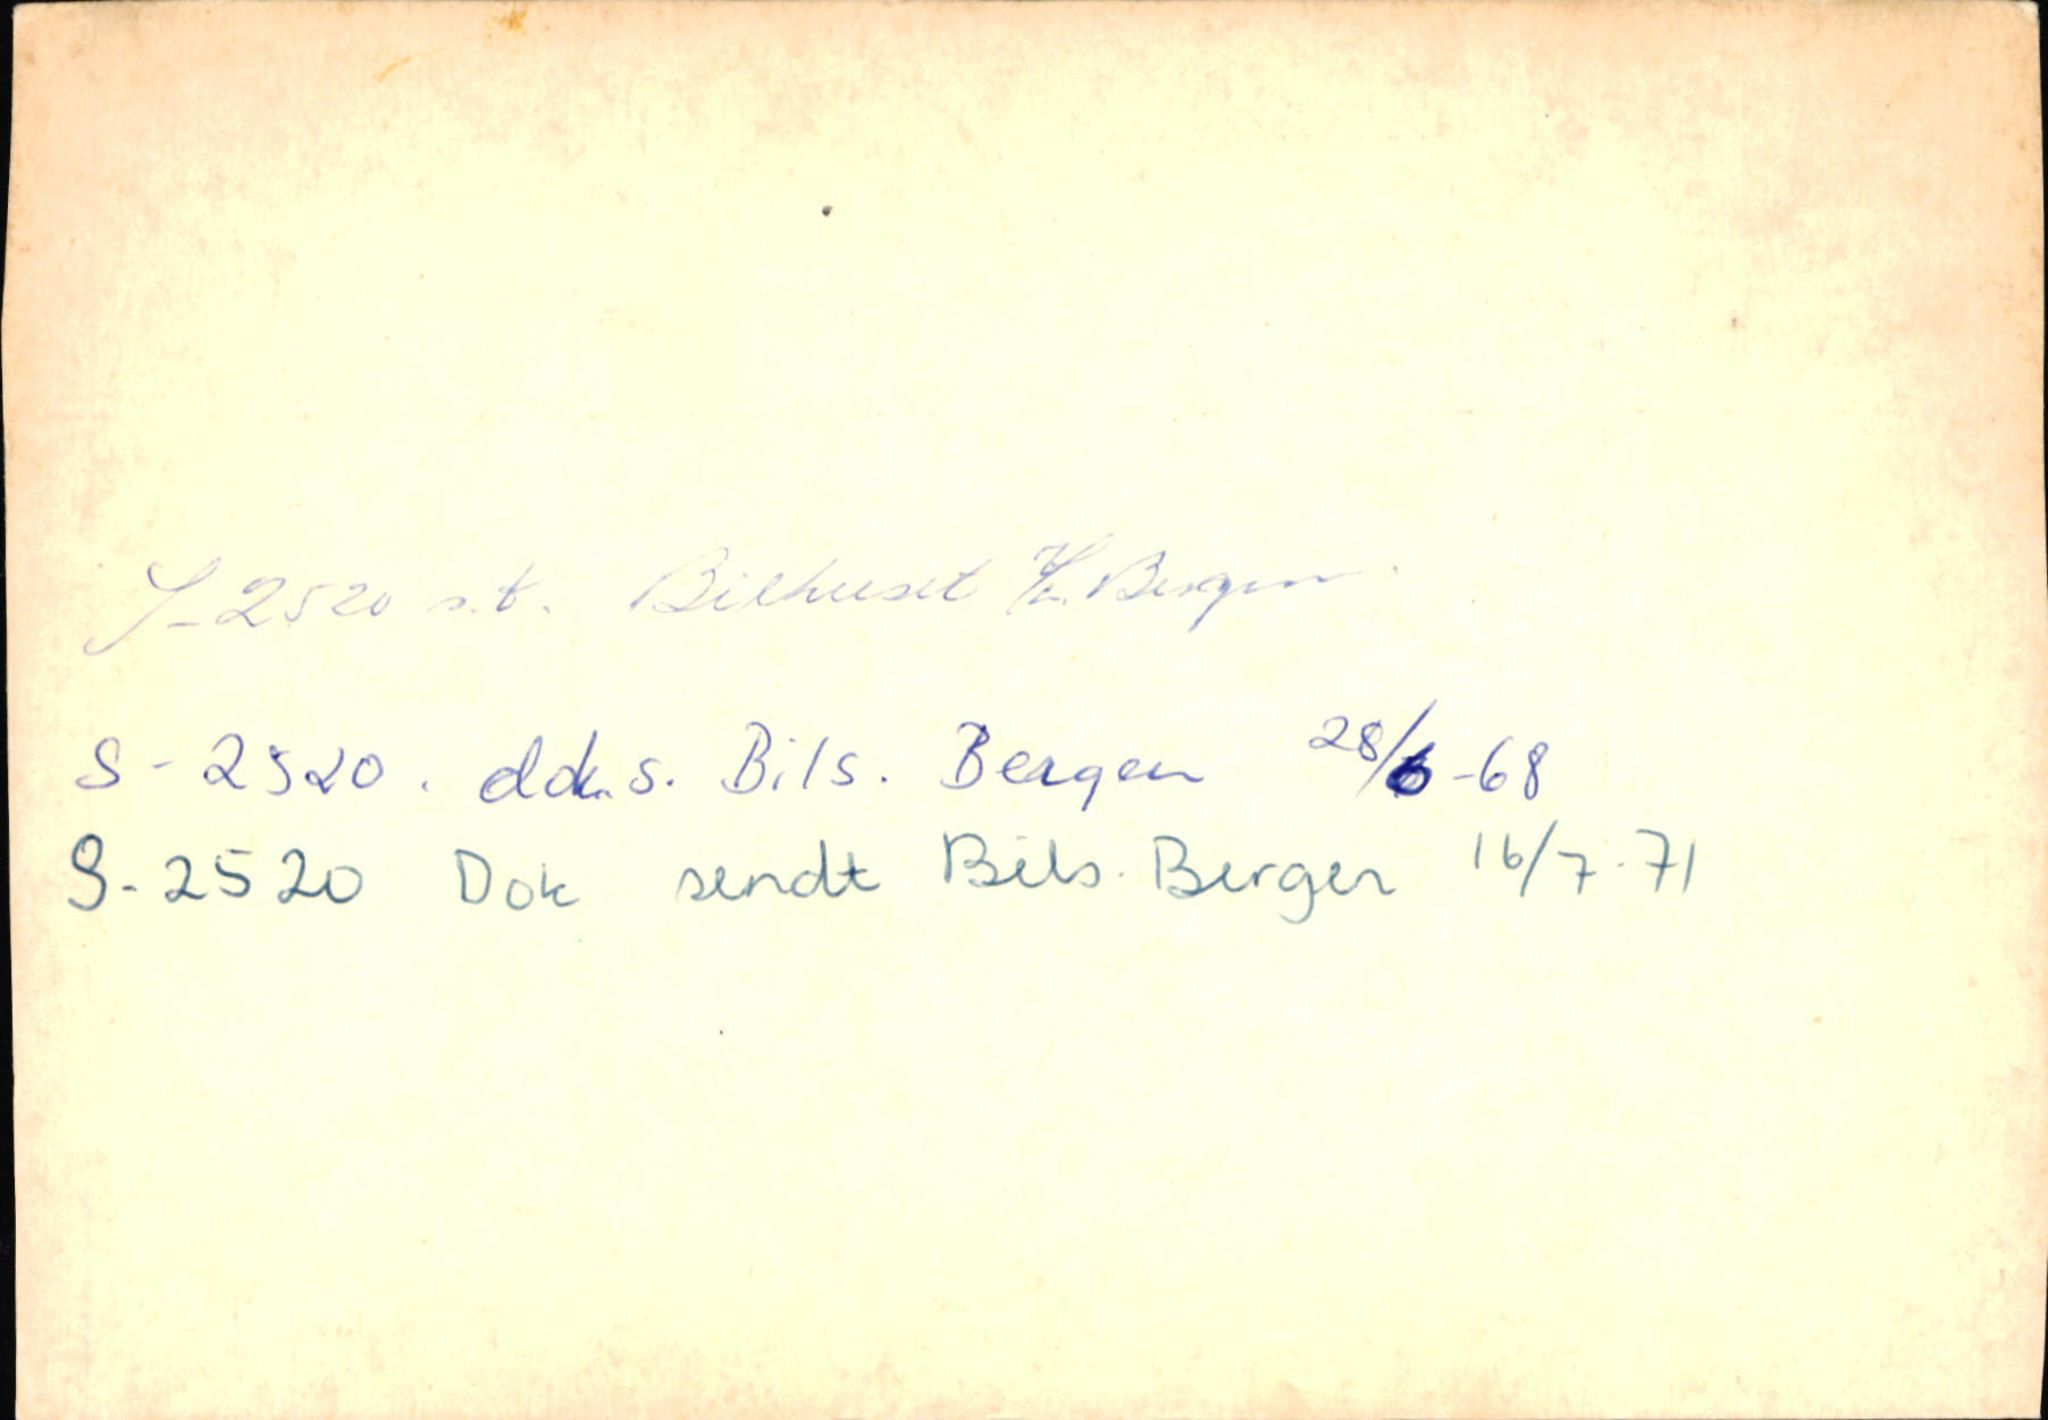 S-2520 s.t. Bilhuset Bergen.
S-2520. dok.s. Bils. Bergen 28/6-68
S-2520 Dok sendt Bils. Bergen 16/7-71